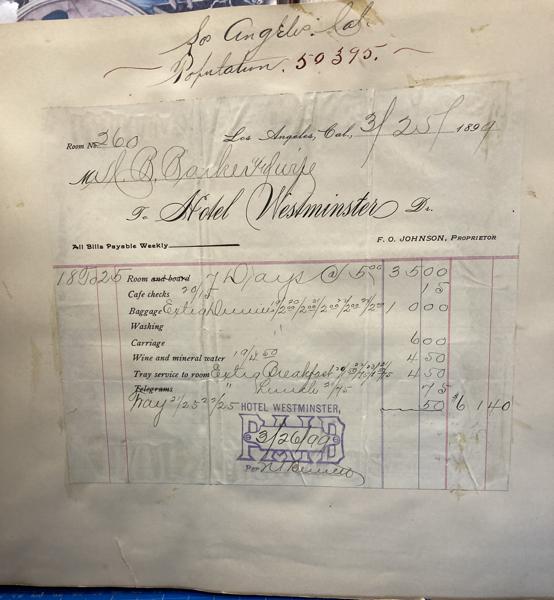 Los Angeles. Cal.
Population. 50395.
Room No. 260 Los Angeles, Cal., 3/25/ 1899
M B. Barker & wife
To Hotel Westminster Dr.
All Bills Payable Weekly F. O. JOHNSON, PROPRIETOR
18 to 25 Room and board 7 Days @ 5 00 35 00
Cafe checks 20/15 15
Baggage Extra Dinners 10 00
Washing
Carriage 6 00
Wine and mineral water 19/4 50 4 50
Tray service to room Extra Breakfast 4 50
Telegrams " Lunch 21/75 75
Tray 21/25 22/25 50 $61 40
HOTEL WESTMINSTER,
PAID
3/26/99
Per Bennett